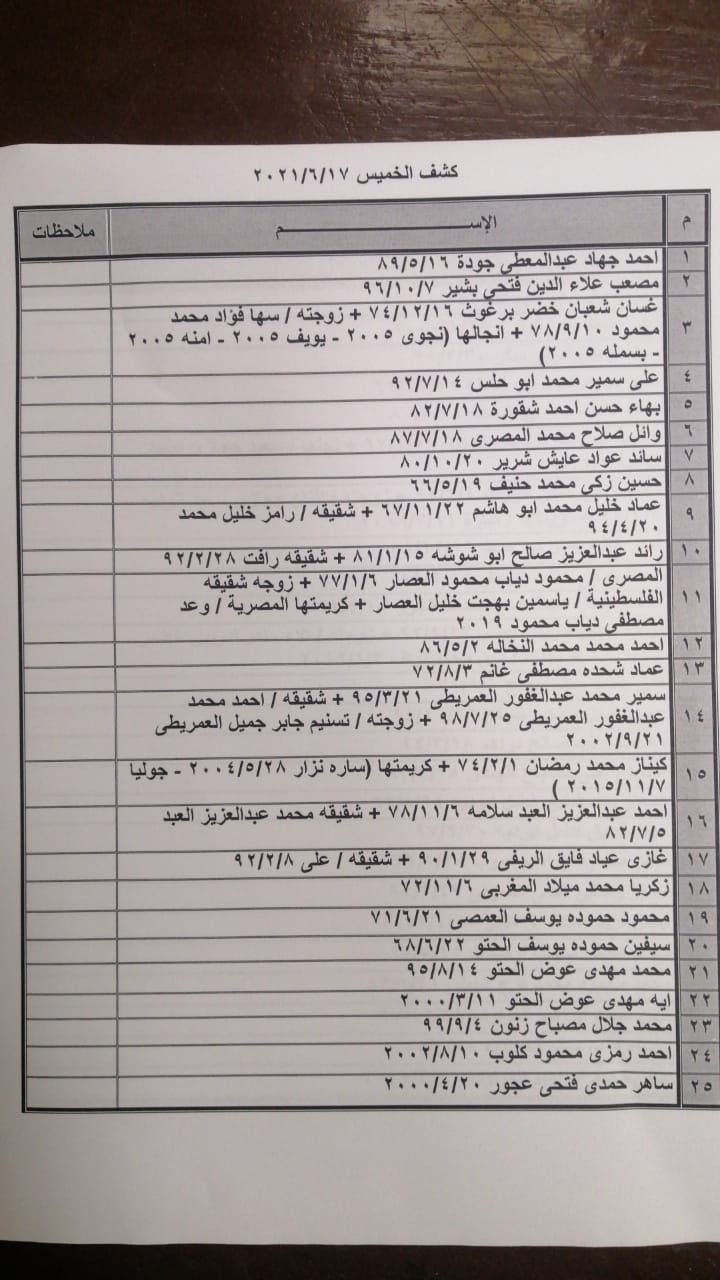 كشف الخميس ٢٠٢١/٦/١٧
م الإســـــــــــم ملاحظات
١ احمد جهاد عبدالمعطى جودة ٨٩/٥/١٦
٢ مصعب علاء الدين فتحي بشير ٩٦/١٠/٧
غسان شعبان خضر برغوث ٧٤/١٢/١٦ + زوجته / سها فؤاد محمد
٣ محمود ٧٨/٩/١٠ + انجالها (نجوى ٢٠٠٥ - يويف ٢٠٠٥ - امنه ٢٠٠٥
- بسمله ٢٠٠٥)
٤ على سمير محمد ابو حلس ٩٢/٧/١٤
٥ بهاء حسن احمد شقورة ٨٢/٧/١٨
٦ وائل صلاح محمد المصرى ٨٧/٧/١٨
٧ سائد عواد عايش شرير ٨٠/١٠/٢٠
٨ حسين زكي محمد حنيف ٦٦/٥/١٩
٩ عماد خليل محمد ابو هاشم ٦٧/١١/٢٢ + شقيقه / رامز خليل محمد
٩٤/٤/٢٠
١٠ رائد عبدالعزيز صالح ابو شوشه ٨١/١/١٥ + شقيقه رافت ٩٢/٢/٢٨
المصرى / محمود دياب محمود العصار ٧٧/١/٦ + زوجه شقيقه
١١ الفلسطينية / ياسمين بهجت خليل العصار + كريمتها المصرية / وعد
مصطفى دياب محمود ٢٠١٩
١٢ احمد محمد محمد النخاله ٨٦/٥/٢
١٣ عماد شحده مصطفى غانم ٧٢/٨/٣
سمير محمد عبدالغفور العمريطى ٩٥/٣/٢١ + شقيقه / احمد محمد
١٤ عبدالغفور العمريطى ٩٨/٧/٢٥ + زوجته / تسنيم جابر جميل العمريطى
٢٠٠٢/٩/٢١
١٥ كيناز محمد رمضان ٧٤/٢/١ + كريمتها (ساره نزار ٢٠٠٤/٥/٢٨ - جوليا
٢٠١٥/١١/٧ )
١٦ احمد عبدالعزيز العبد سلامه ٧٨/١١/٦ + شقيقه محمد عبدالعزيز العبد
٨٢/٧/٥
١٧ غازى عياد فايق الريفى ٩٠/١/٢٩ + شقيقه / على ٩٢/٢/٨
١٨ زكريا محمد ميلاد المغربى ٧٢/١١/٦
١٩ محمود حموده يوسف العمصى ٧١/٦/٢١
٢٠ سيفين حموده يوسف الحتو ٦٨/٦/٢٢
٢١ محمد مهدى عوض الحتو ٩٥/٨/١٤
٢٢ ايه مهدى عوض الحتو ٢٠٠٠/٣/١١
٢٣ محمد جلال مصباح زنون ٩٩/٩/٤
٢٤ احمد رمزى محمود كلوب ٢٠٠٢/٨/١٠
٢٥ ساهر حمدى فتحى عجور ٢٠٠٠/٤/٢٠